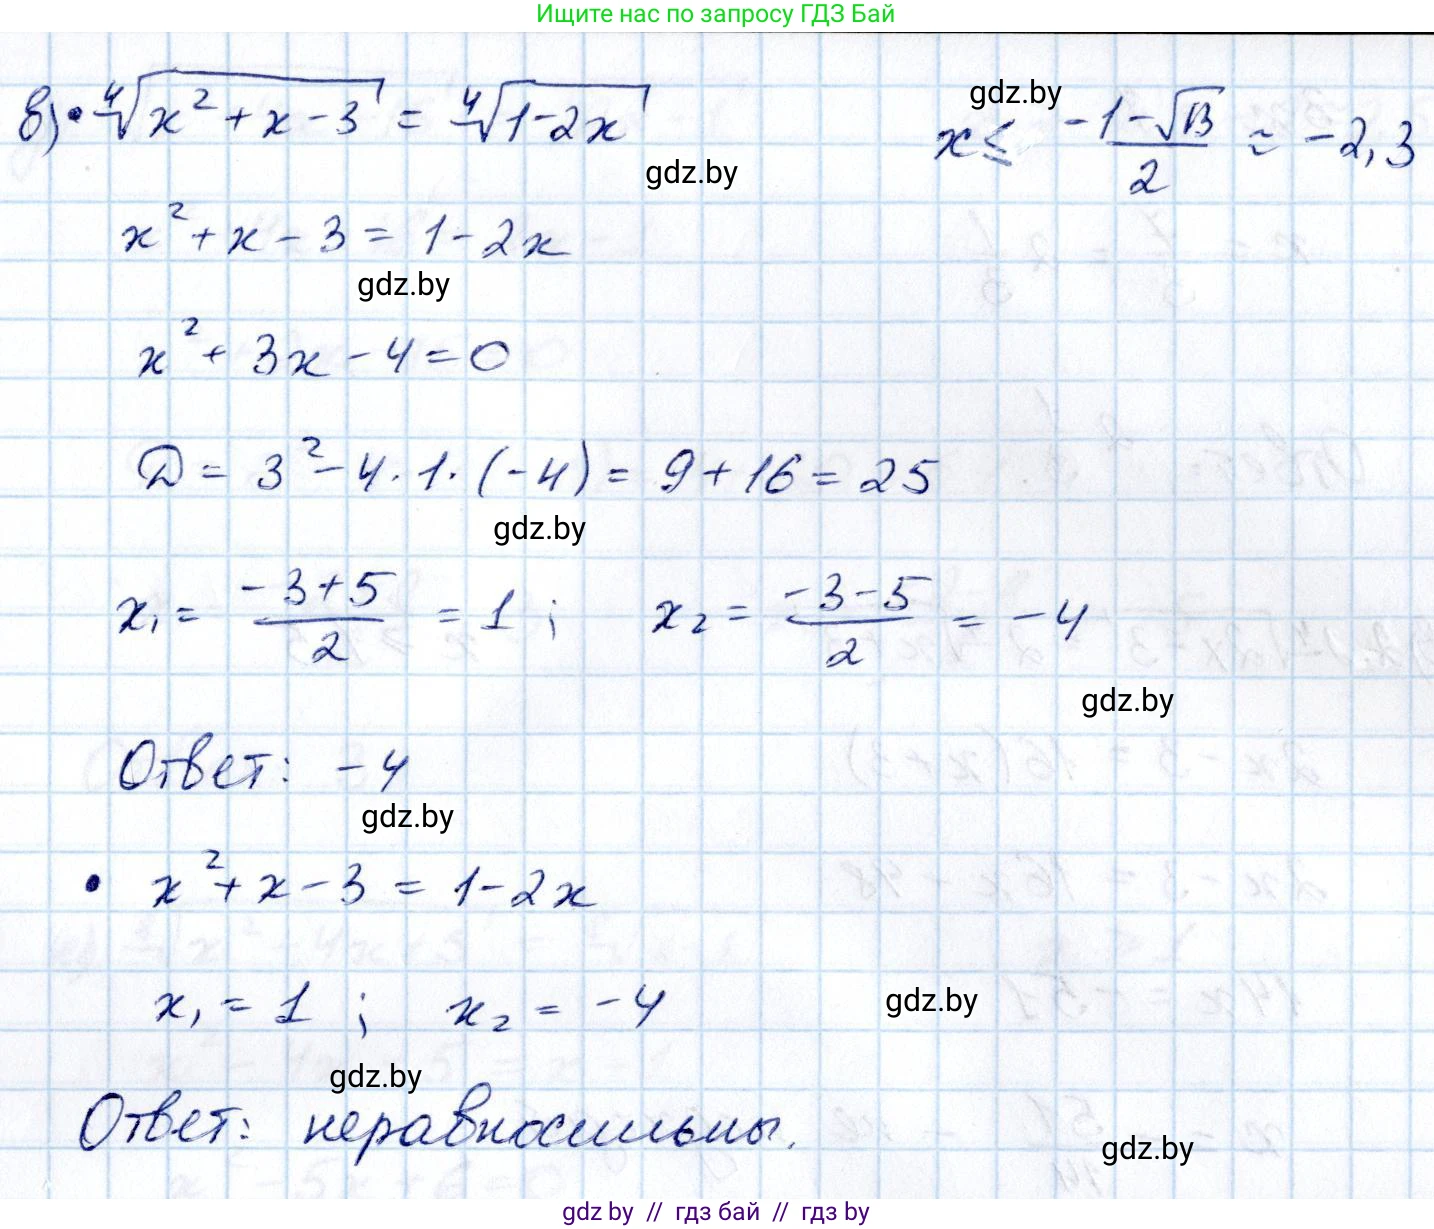 Ищите нас по запросу ГДЗ Бай
в) • ∜(x² + x - 3) = ∜(1 - 2x)
gdz.by
x ≤ (-1 - √13)/2 ≈ -2,3
gdz.by
x² + x - 3 = 1 - 2x
gdz.by
x² + 3x - 4 = 0
Д = 3² - 4 · 1 · (-4) = 9 + 16 = 25
gdz.by
x₁ = (-3 + 5)/2 = 1 ; x₂ = (-3 - 5)/2 = -4
gdz.by
Ответ: -4
gdz.by
• x² + x - 3 = 1 - 2x
x₁ = 1 ; x₂ = -4
gdz.by
gdz.by
Ответ: неравносильны.
gdz.by
gdz by // гдз бай // гдз by